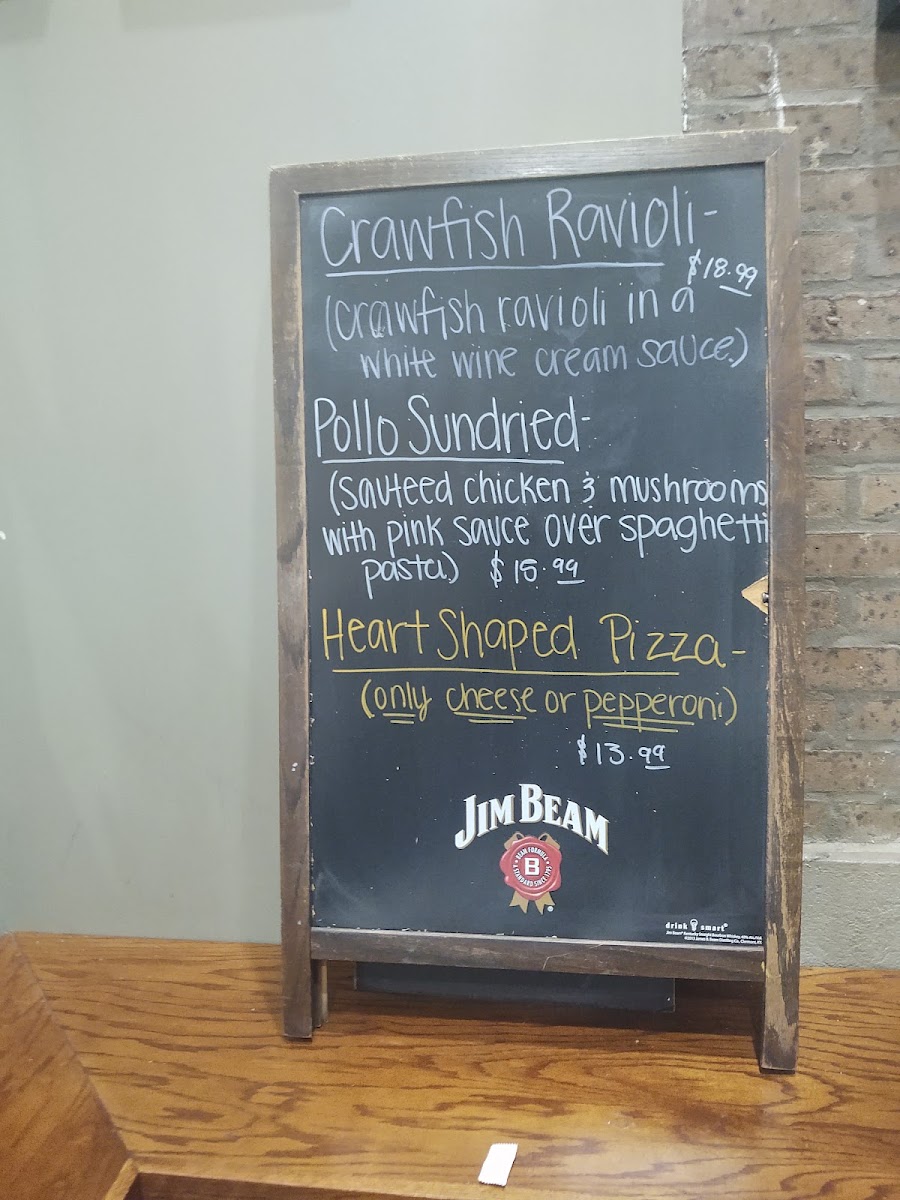 Crawfish Ravioli-
$18.99
(crawfish ravioli in a
white wine cream sauce.)
Pollo Sundried-
(sauteed chicken & mushrooms
with pink sauce over spaghetti
pasta.) $15.99
Heart Shaped Pizza-
(only cheese or pepperoni)
$13.99
JIM BEAM
BEAM FORMULA
B
A STANDARD SINCE 1795
drink smart®